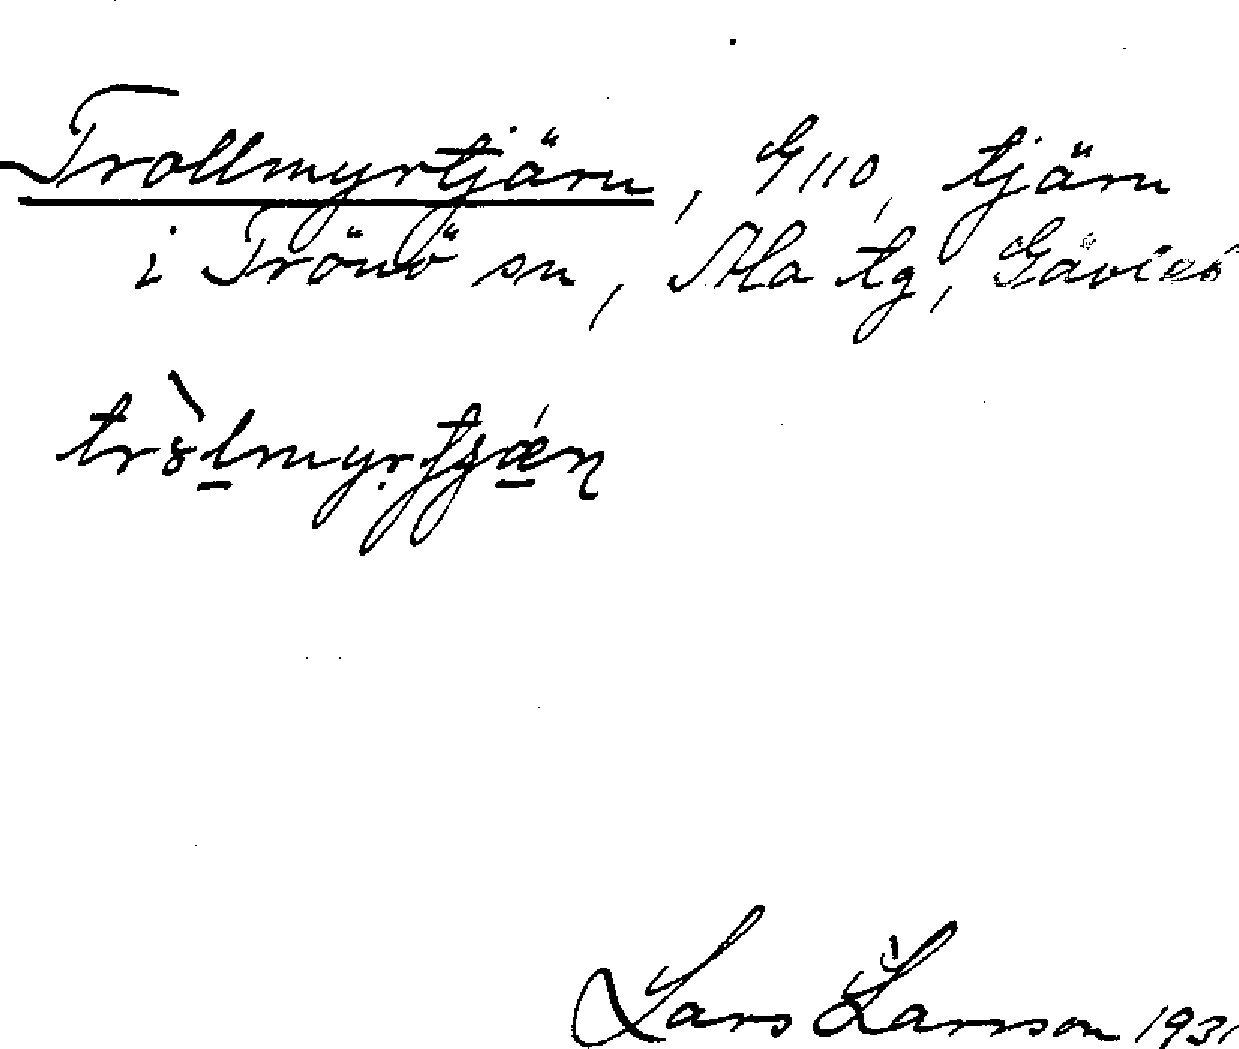 Trollmyrtjärn, G 110, tjärn
i Trönö sn, Ala tg, Gävleb
Lars Larsson 1931